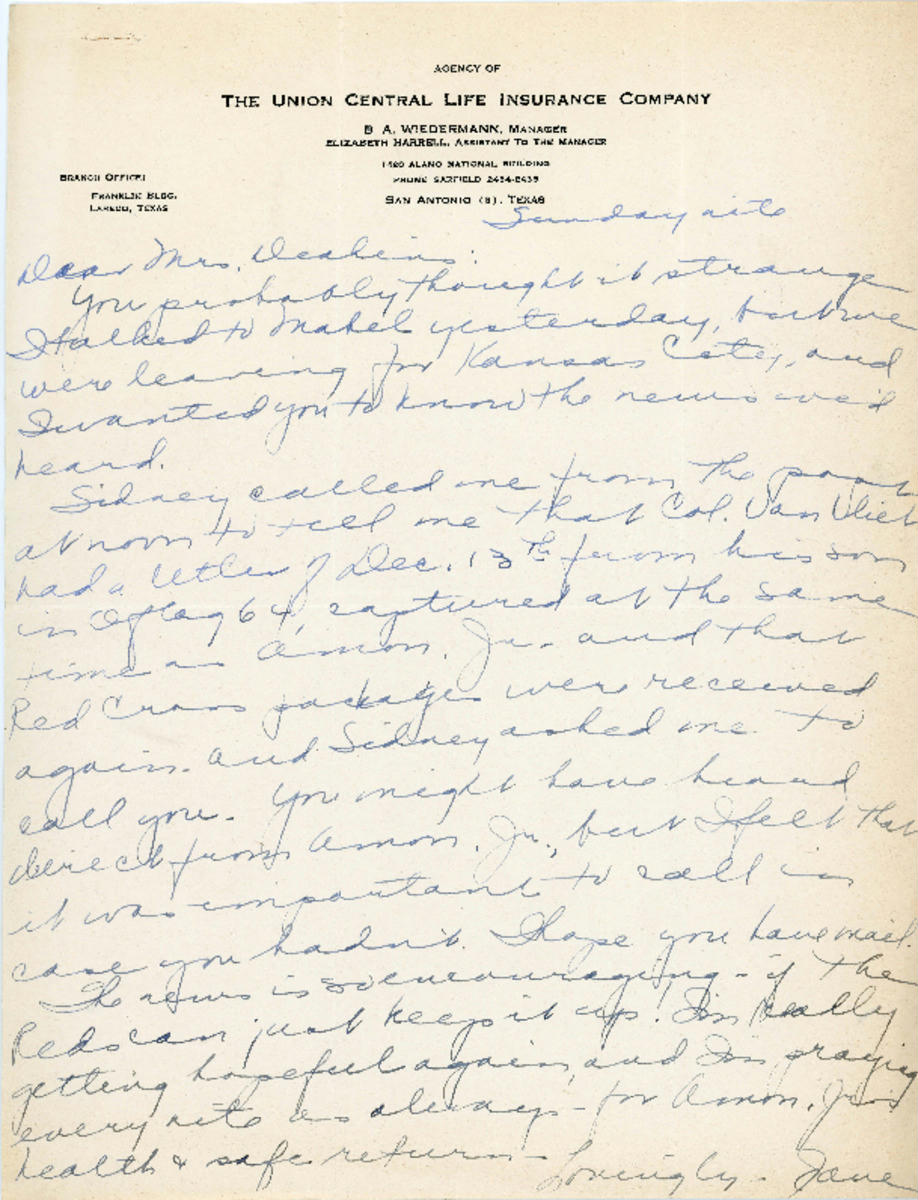 AGENCY OF
THE UNION CENTRAL LIFE INSURANCE COMPANY
B. A. WIEDERMANN, MANAGER
ELIZABETH HARRELL, ASSISTANT TO THE MANAGER
BRANCH OFFICE:
FRANKLIN BLDG.
LAREDO, TEXAS
1420 ALAMO NATIONAL BUILDING
PHONE GARFIELD 2434-2435
SAN ANTONIO (5), TEXAS
Sunday nite
Dear Mrs. Deakins:
You probably thought it strange
I talked to Mabel yesterday, but we
were leaving for Kansas City, and
I wanted you to know the news we'd
heard.
Sidney called me from the post
at noon to tell me that Col. Van Vliet
had a letter of Dec. 13th from his son
in Oflag 64, captured at the same
time as Amon, Jr. and that
Red Cross packages were received
again. And Sidney asked me to
call you. You might have heard
direct from Amon, Jr., but I felt that
it was important to call in
case you hadn't. I hope you have mail.
The news is so encouraging - if the
Reds can just keep it up! I'm really
getting hopeful again, and I'm praying
every nite as always - for Amon, Jr's
health & safe return -
Lovingly - Jane